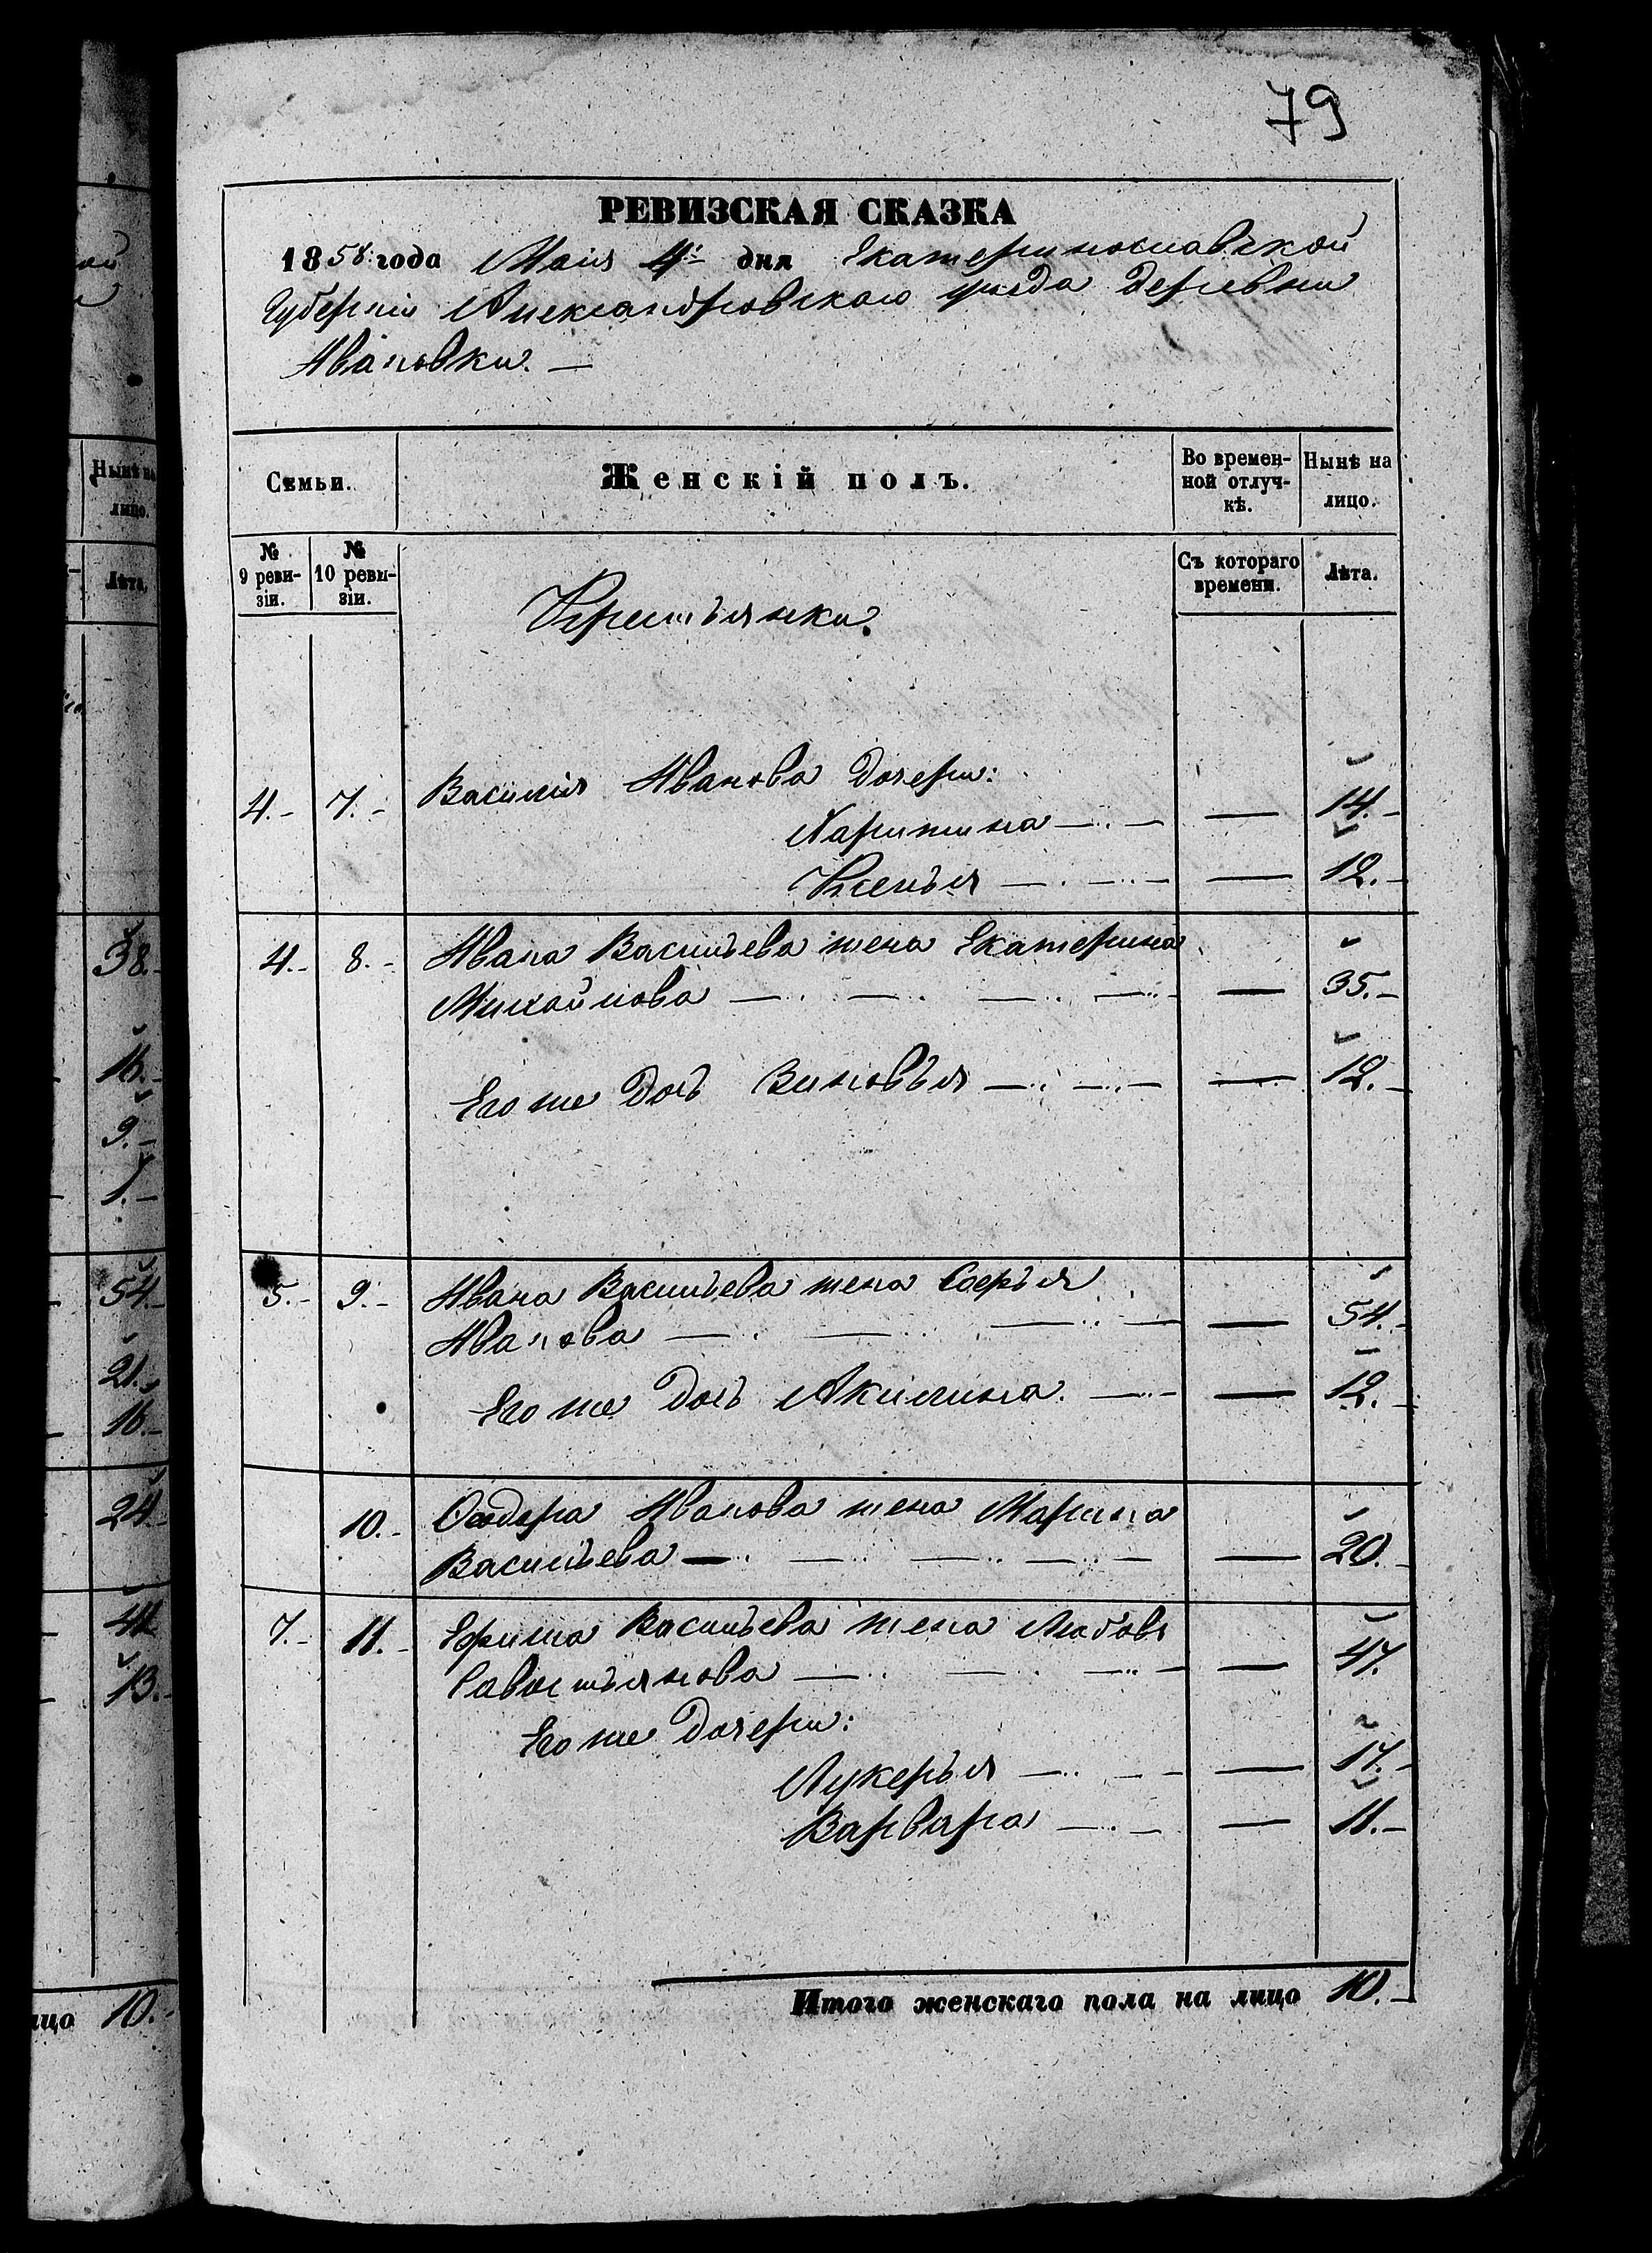 79
РЕВИЗСКАЯ СКАЗКА
1858 года Маія 4. дня Екатеринославской
Губерніи Александровскаго уезда деревни
Ивановки. —
Семьи.
Женскій полъ.
Во времен-
ной отлуч-
кѣ.
Нынѣ на
лицо.
№
9 реви-
зіи.
№
10 реви-
зіи.
Съ котораго
времени.
Лѣта.
Крестьянки.
4. 7. Василія Иванова дочери:
Харитина — 14.
Ксенья — 12.
4. 8. Ивана Васильева жена Екатерина
Михайлова — 35.
Его же дочь Зиновья — 12.
5. 9. Ивана Васильева жена Софья
Иванова — 54.
Его же дочь Акилина — 12.
10. Ѳедора Иванова жена Марина
Васильева — 20.
7. 11. Ефима Васильева жена Любовь
Савостьянова — 47.
Его же дочери:
Лукерья — 17.
Варвара — 11.
Итого женскаго пола на лицо 10.
Нынѣ на
лицо.
Лѣта,
38.
16.
9.
1.
54.
21.
16.
24.
13.
10.